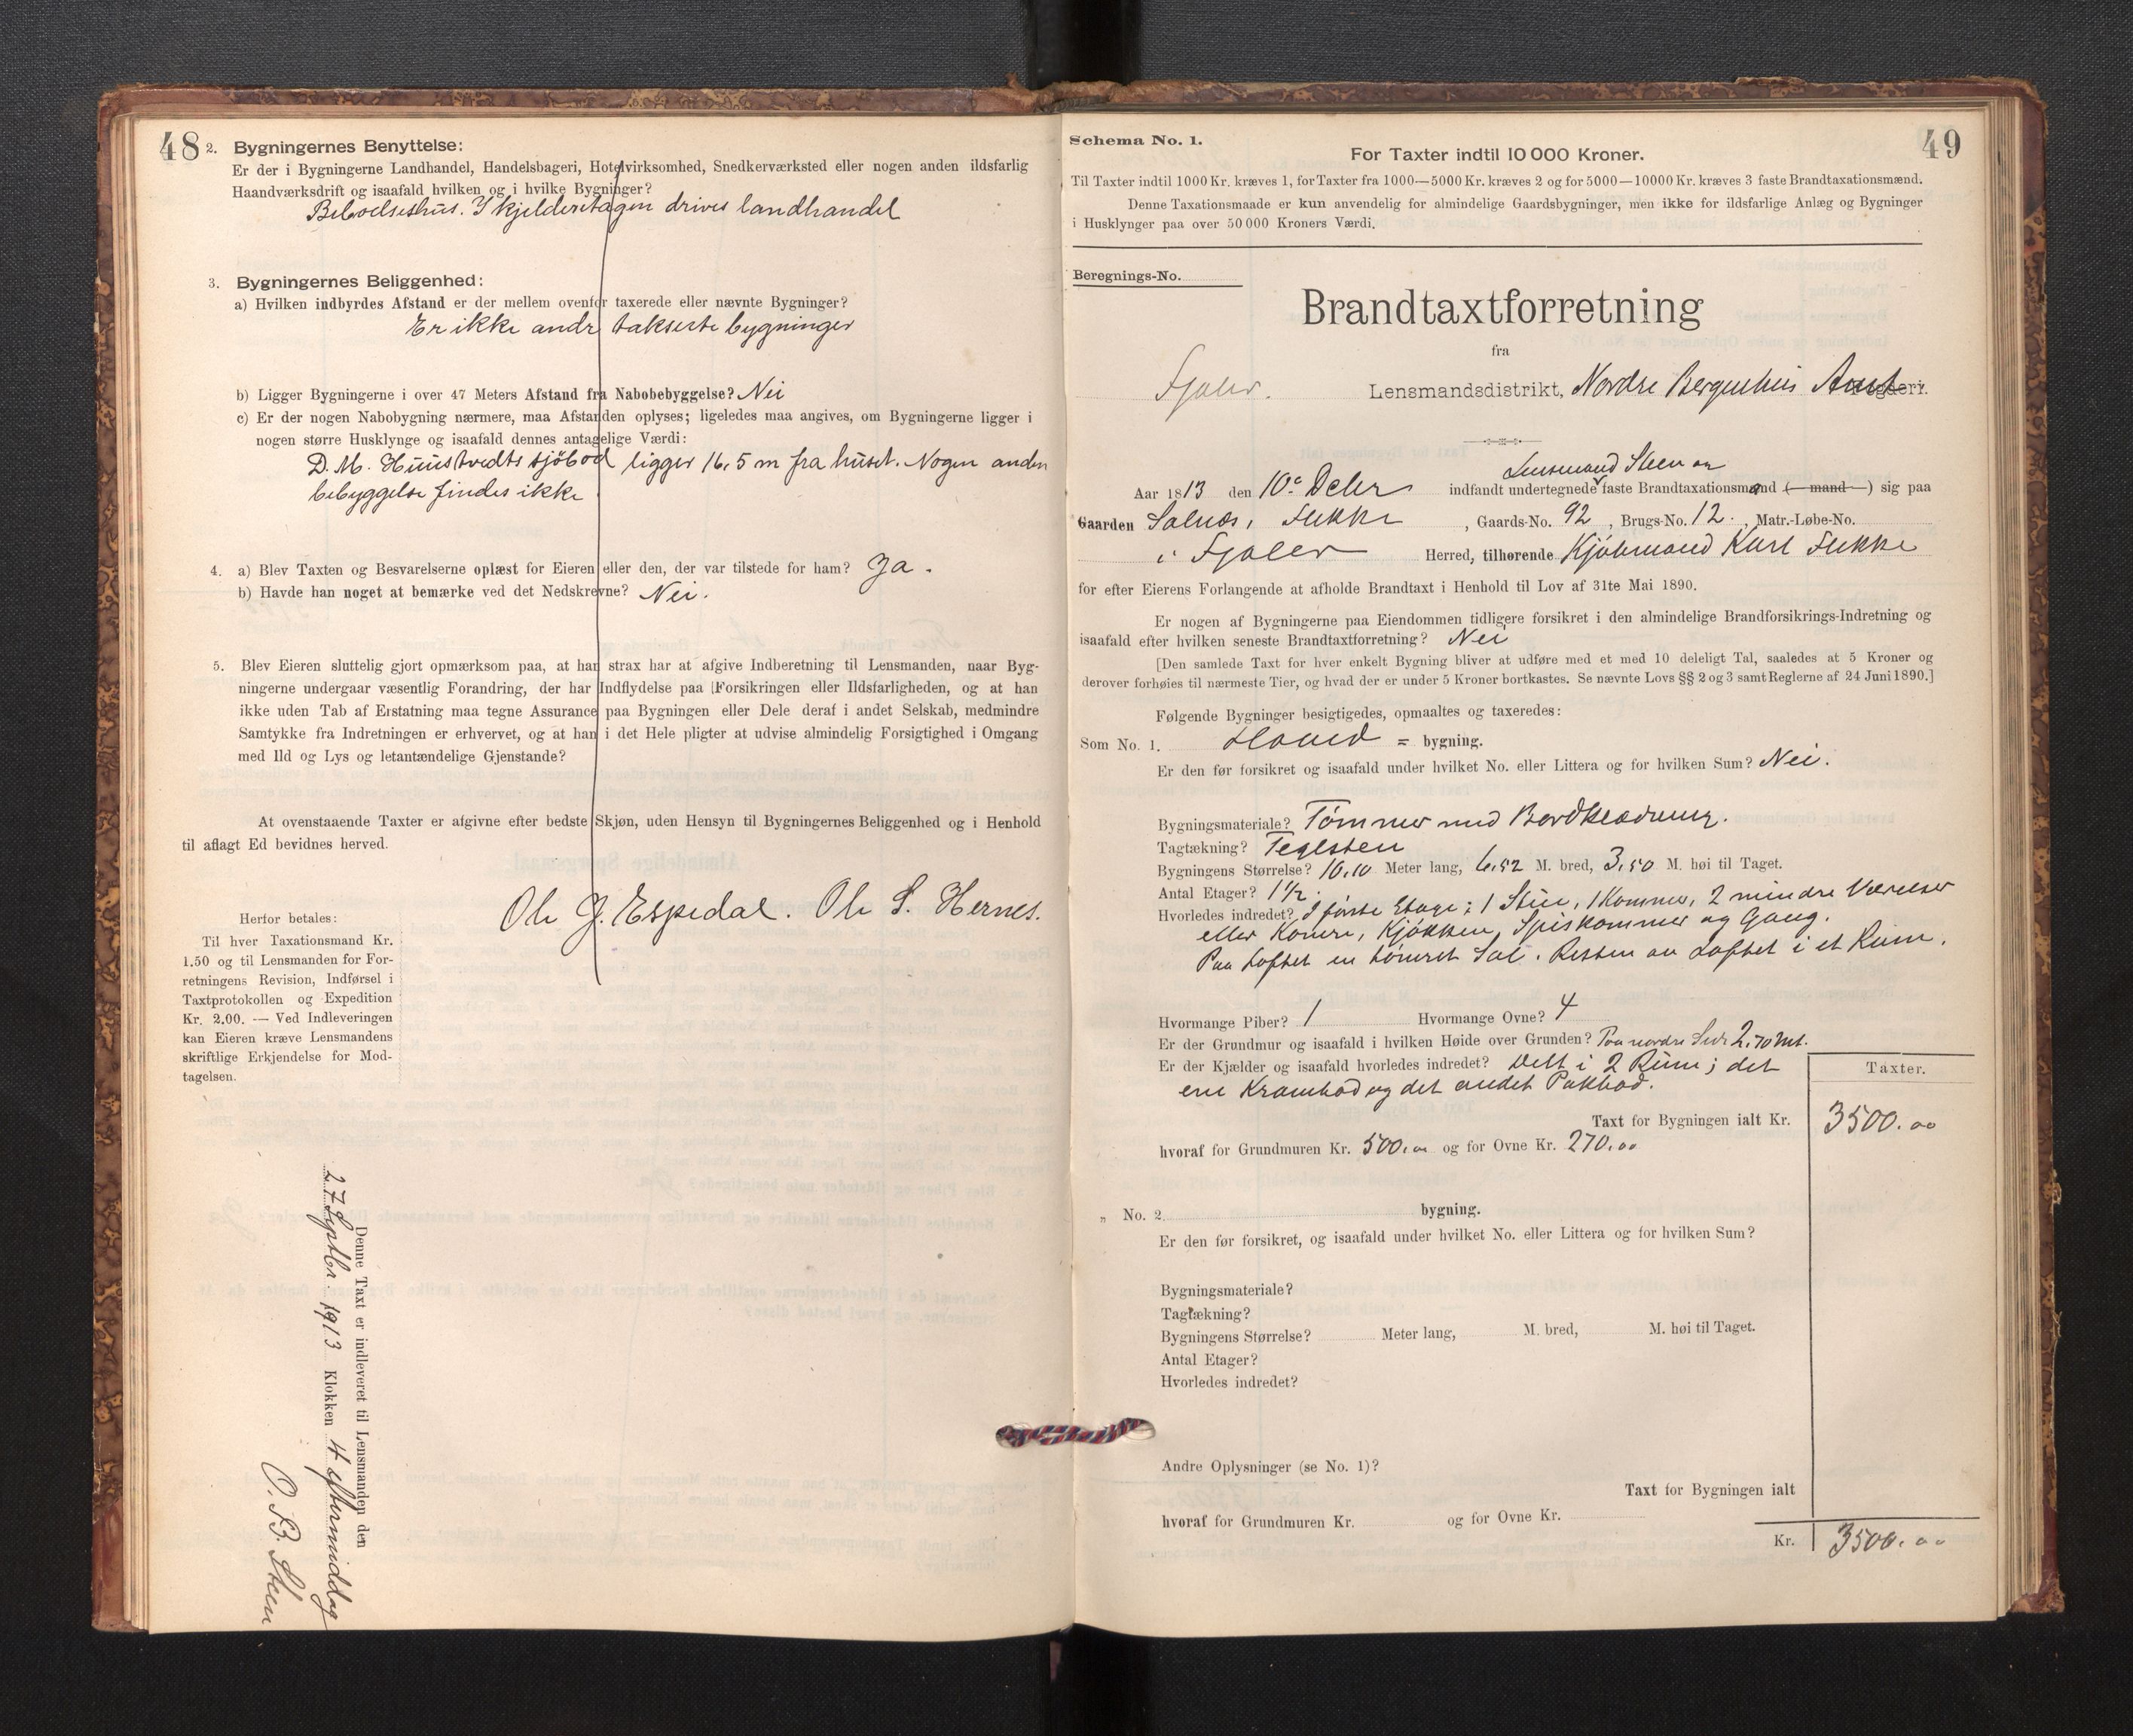 48
2. Bygningernes Benyttelse:
Er der i Bygningerne Landhandel, Handelsbageri, Hotelvirksomhed, Snedkerværksted eller nogen anden ildsfarlig
Haandværksdrift og isaafald hvilken og i hvilke Bygninger?
Beboelseshus. I kjelderetagen drives landhandel
3. Bygningernes Beliggenhed:
a) Hvilken indbyrdes Afstand er der mellem ovenfor taxerede eller nævnte Bygninger?
Er ikke andre takserte bygninger
b) Ligger Bygningerne i over 47 Meters Afstand fra Nabobebyggelse? Nei
c) Er der nogen Nabobygning nærmere, maa Afstanden oplyses; ligeledes maa angives, om Bygningerne ligger i
nogen større Husklynge og isaafald dennes antagelige Værdi:
D. M. Huustvedts sjöbod ligger 16,5 m fra huset. Nogen anden
bebyggelse findes ikke
4. a) Blev Taxten og Besvarelserne oplæst for Eieren eller den, der var tilstede for ham? Ja.
b) Havde han noget at bemærke ved det Nedskrevne? Nei.
5. Blev Eieren sluttelig gjort opmærksom paa, at han strax har at afgive Indberetning til Lensmanden, naar Byg-
ningerne undergaar væsentlig Forandring, der har Indflydelse paa Forsikringen eller Ildsfarligheden, og at han
ikke uden Tab af Erstatning maa tegne Assurance paa Bygningen eller Dele deraf i andet Selskab, medmindre
Samtykke fra Indretningen er erhvervet, og at han i det Hele pligter at udvise almindelig Forsigtighed i Omgang
med Ild og Lys og letantændelige Gjenstande?
At ovenstaaende Taxter er afgivne efter bedste Skjøn, uden Hensyn til Bygningernes Beliggenhed og i Henhold
til aflagt Ed bevidnes herved.
Ole J. Espedal. Ole S. Hernes.
Herfor betales:
Til hver Taxationsmand Kr.
1.50 og til Lensmanden for For-
retningens Revision, Indførsel i
Taxtprotokollen og Expedition
Kr. 2.00. — Ved Indleveringen
kan Eieren kræve Lensmandens
skriftlige Erkjendelse for Mod-
tagelsen.
Denne Taxt er indleveret til Lensmanden den
27 Septbr. 1913 Klokken 4 eftermiddag
O. B. Steen
49
Schema No. 1.
For Taxter indtil 10 000 Kroner.
Til Taxter indtil 1000 Kr. kræves 1, for Taxter fra 1000—5000 Kr. kræves 2 og for 5000—10000 Kr. kræves 3 faste Brandtaxationsmænd.
Denne Taxationsmaade er kun anvendelig for almindelige Gaardsbygninger, men ikke for ildsfarlige Anlæg og Bygninger
i Husklynger paa over 50 000 Kroners Værdi.
Beregnings-No.
Brandtaxtforretning
fra
Fjaler. Lensmandsdistrikt, Nordre Bergenhus Amt
Lensmand Steen og
Aar 1813 den 10e Debr indfandt undertegnede faste Brandtaxationsmand (—mand—) sig paa
Gaarden , Gaards-No. 92, Brugs-No. 12., Matr.-Løbe-No.
i Fjaler Herred, tilhørende Kjöbmand Karl
for efter Eierens Forlangende at afholde Brandtaxt i Henhold til Lov af 31te Mai 1890.
Er nogen af Bygningerne paa Eiendommen tidligere forsikret i den almindelige Brandforsikrings-Indretning og
isaafald efter hvilken seneste Brandtaxtforretning? Nei
[Den samlede Taxt for hver enkelt Bygning bliver at udføre med et med 10 deleligt Tal, saaledes at 5 Kroner og
derover forhøies til nærmeste Tier, og hvad der er under 5 Kroner bortkastes. Se nævnte Lovs §§ 2 og 3 samt Reglerne af 24 Juni 1890.]
Følgende Bygninger besigtigedes, opmaaltes og taxeredes:
Som No. 1. Hoved = bygning.
Er den før forsikret og isaafald under hvilket No. eller Littera og for hvilken Sum? Nei.
Bygningsmateriale? Tömmer med Bordklædning.
Tagtækning? Teglsten
Bygningens Størrelse? 10,10 Meter lang, 6,52 M. bred, 3,50 M. høi til Taget.
Antal Etager? 1½.
Hvorledes indredet? I förste Etage: 1 Stue, 1 Kammer, 2 mindre Værelser
eller Komre, Kjökken, Spiskammer og Gang.
Paa Loftet en tömret Sal. Resten av Loftet i et Rum.
Hvormange Piber? 1 Hvormange Ovne? 4
Er der Grundmur og isaafald i hvilken Høide over Grunden? Paa nordre Side 2,70 mt.
Er der Kjælder og isaafald hvorledes indredet? Delt i 2 Rum; det
ene Krambod og det andet Pakbod.
Taxter.
Taxt for Bygningen ialt Kr. 3500.00
hvoraf for Grundmuren Kr. 500.00 og for Ovne Kr. 270.00
„ No. 2. bygning.
Er den før forsikret, og isaafald under hvilket No. eller Littera og for hvilken Sum?
Bygningsmateriale?
Tagtækning?
Bygningens Størrelse? Meter lang, M. bred, M. høi til Taget.
Antal Etager?
Hvorledes indredet?
Andre Oplysninger (se No. 1)?
Taxt for Bygningen ialt
hvoraf for Grundmuren Kr. og for Ovne Kr.
Kr. 3500.00